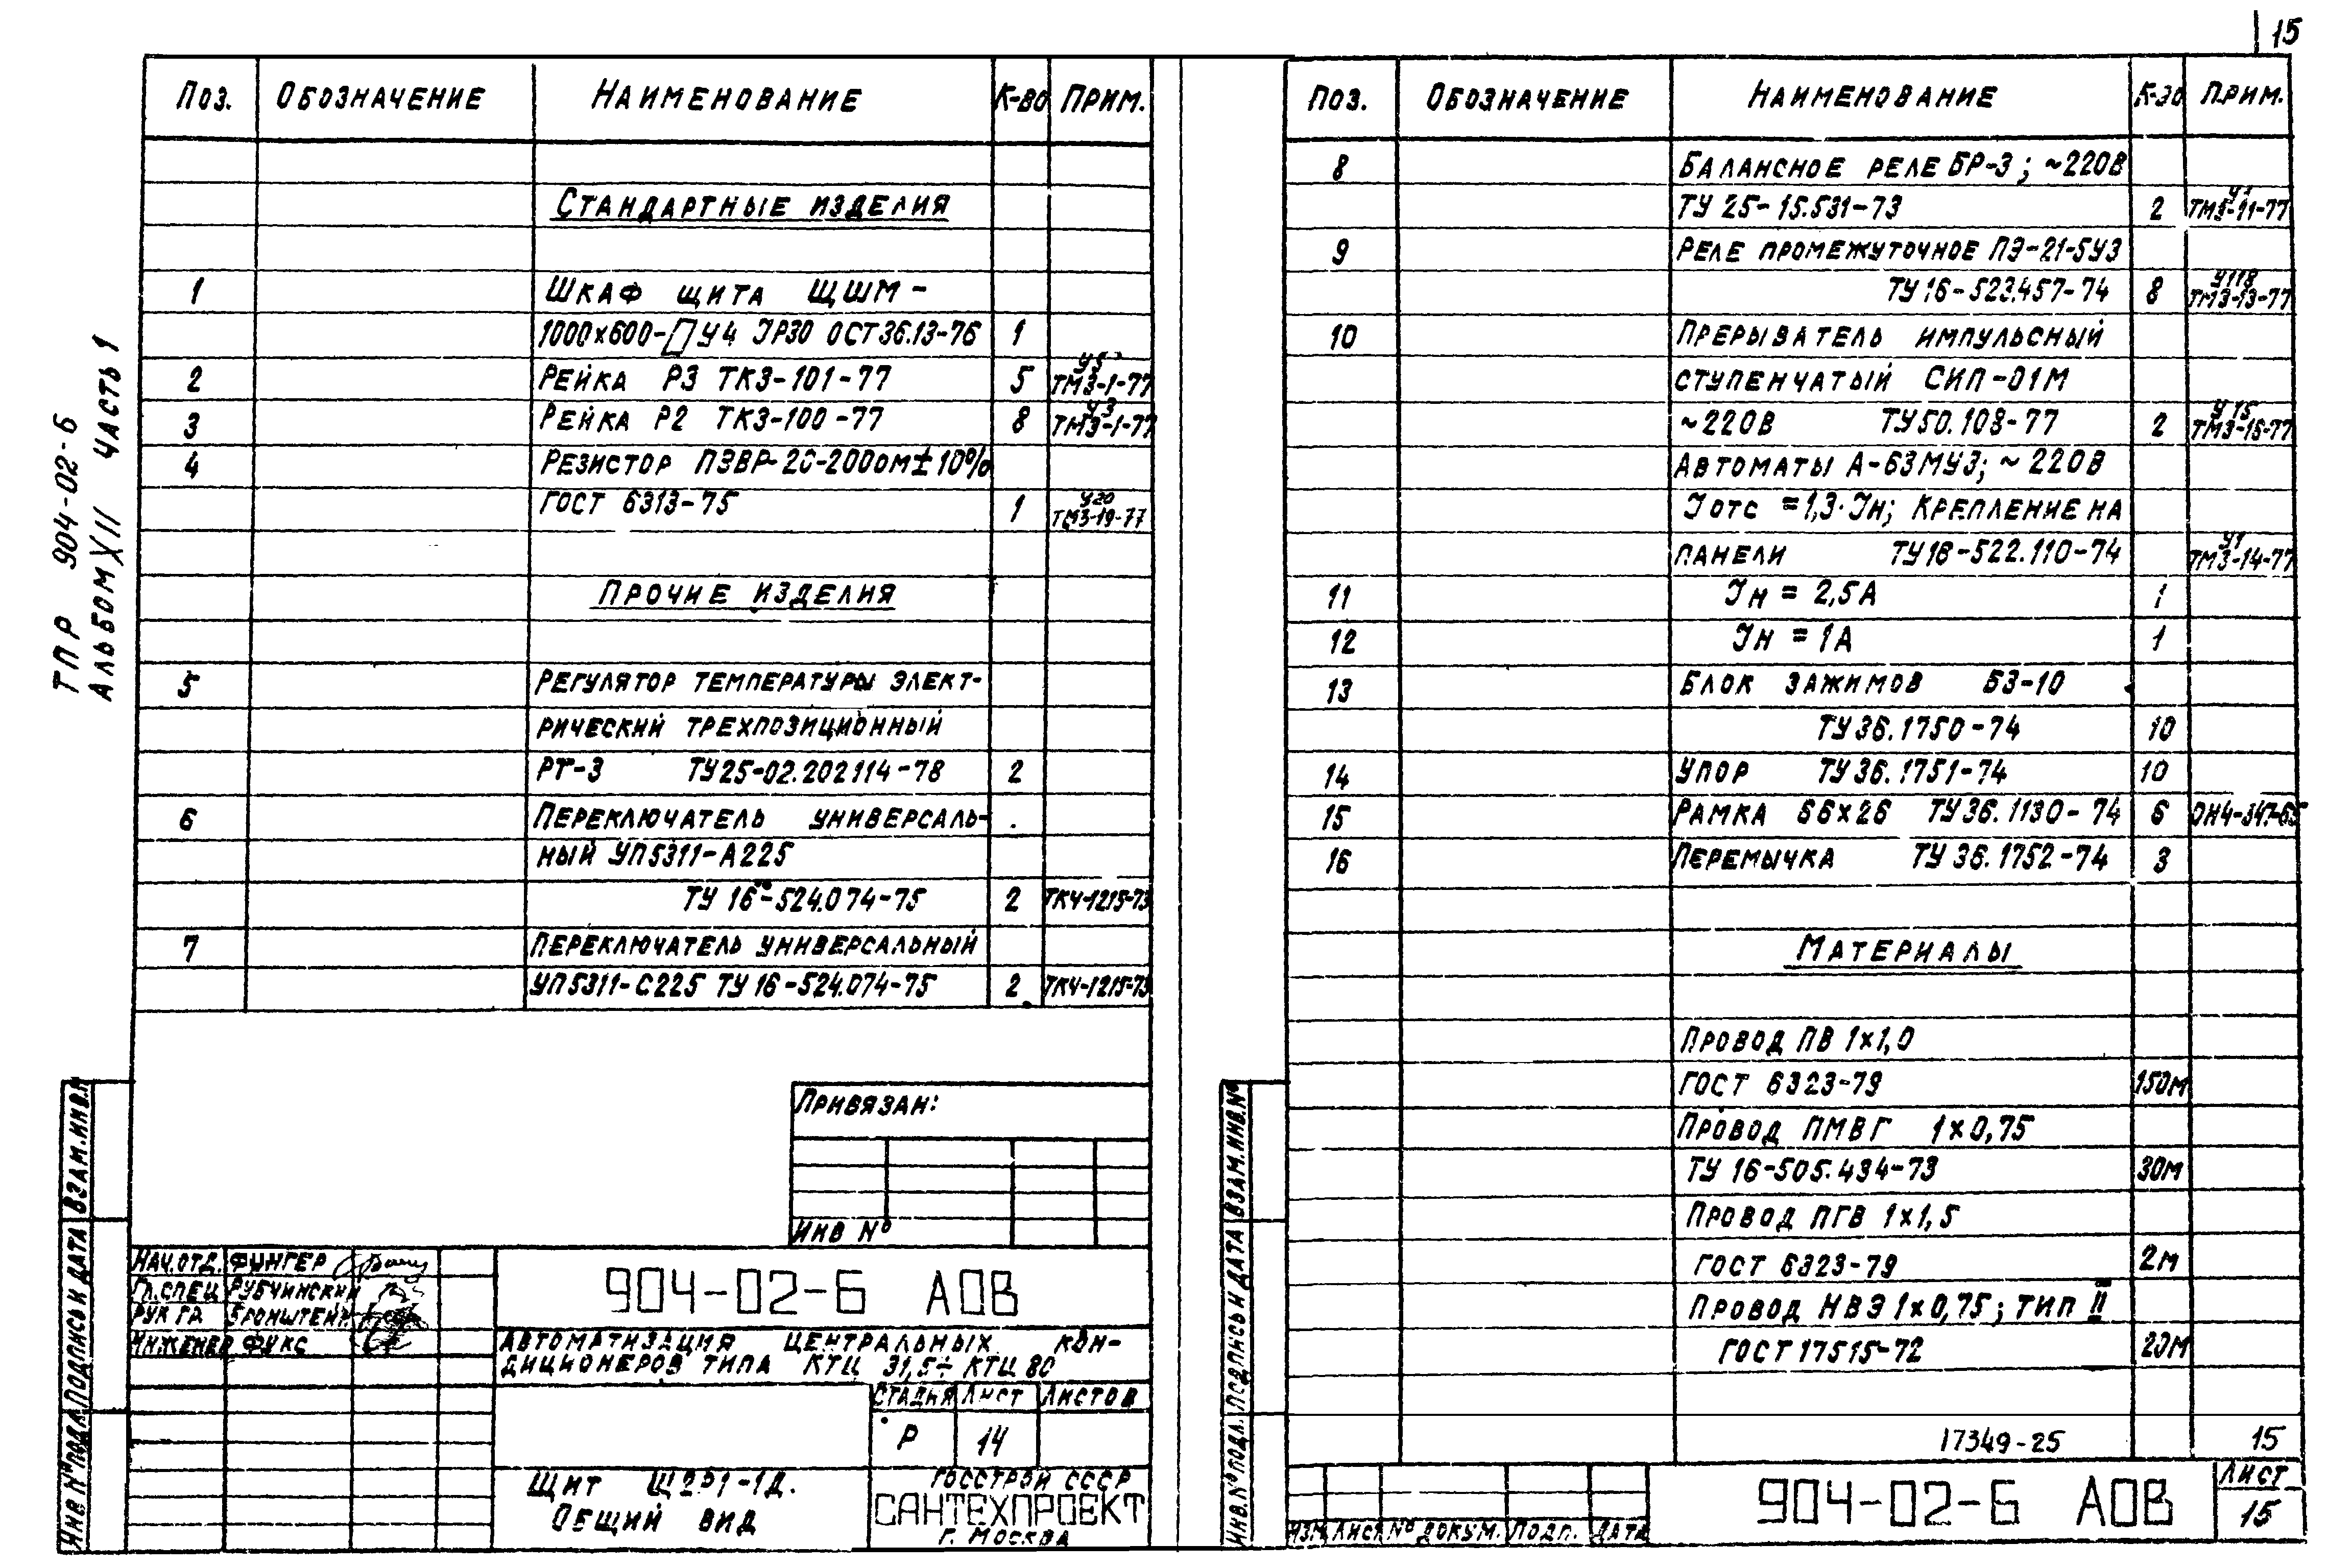 15
ТПР 904-02-6
АЛЬБОМ XII ЧАСТЬ 1
ПОЗ. ОБОЗНАЧЕНИЕ НАИМЕНОВАНИЕ К-ВО ПРИМ.
СТАНДАРТНЫЕ ИЗДЕЛИЯ
1 ШКАФ ЩИТА ЩШМ-
1000×600-□У4 JР30 ОСТ36.13-76 1
У5
2 РЕЙКА Р3 ТК3-101-77 5 ТМ3-1-77
У3
3 РЕЙКА Р2 ТК3-100-77 8 ТМ3-1-77
4 РЕЗИСТОР ПЭВР-20-200ОМ±10%
У20
ГОСТ 6313-75 1 ТМ3-19-77
ПРОЧИЕ ИЗДЕЛИЯ
5 РЕГУЛЯТОР ТЕМПЕРАТУРЫ ЭЛЕКТ-
РИЧЕСКИЙ ТРЕХПОЗИЦИОННЫЙ
РТ-3 ТУ25-02.202114-78 2
6 ПЕРЕКЛЮЧАТЕЛЬ УНИВЕРСАЛЬ-
НЫЙ УП5311-А225
ТУ 16-524.074-75 2 ТК4-1215-73
7 ПЕРЕКЛЮЧАТЕЛЬ УНИВЕРСАЛЬНЫЙ
УП5311-С225 ТУ 16-524.074-75 2 ТК4-1215-73
ПРИВЯЗАН:
ИНВ №
НАЧ.ОТД. ФИНГЕР
ГЛ.СПЕЦ РУБЧИНСКИЙ
РУК ГР. БРОНШТЕЙН
ИНЖЕНЕР ФУКС
904-02-6 АОВ
АВТОМАТИЗАЦИЯ ЦЕНТРАЛЬНЫХ КОН-
ДИЦИОНЕРОВ ТИПА КТЦ 31,5÷ КТЦ 80
СТАДИЯ ЛИСТ ЛИСТОВ
Р 14
ЩИТ
ОБЩИЙ ВИД
ГОССТРОЙ СССР
САНТЕХПРОЕКТ
Г. МОСКВА
ИНВ №ПОДЛ. ПОДПИСЬ И ДАТА ВЗАМ.ИНВ.№
ПОЗ. ОБОЗНАЧЕНИЕ НАИМЕНОВАНИЕ К-ВО ПРИМ.
8 БАЛАНСНОЕ РЕЛЕ БР-3; ~220В
ТУ 25-15.531-73 2 ТМ3-11-77
9 РЕЛЕ ПРОМЕЖУТОЧНОЕ ПЭ-21-5У3
У118
ТУ16-523.457-74 8 ТМ3-13-77
10 ПРЕРЫВАТЕЛЬ ИМПУЛЬСНЫЙ
СТУПЕНЧАТЫЙ СИП-01М
У15
~220В ТУ50.108-77 2 ТМ3-15-77
АВТОМАТЫ А-63МУ3; ~220В
Jотс =1,3·Jн; КРЕПЛЕНИЕ НА
У1
ПАНЕЛИ ТУ16-522.110-74 ТМ3-14-77
11 Jн = 2,5А 1
12 Jн = 1А 1
13 БЛОК ЗАЖИМОВ БЗ-10
ТУ36.1750-74 10
14 УПОР ТУ36.1751-74 10
15 РАМКА 66×26 ТУ36.1130-74 6 ОН4-347-65
16 ПЕРЕМЫЧКА ТУ36.1752-74 3
МАТЕРИАЛЫ
ПРОВОД ПВ 1×1,0
ГОСТ 6323-79 150М
ПРОВОД ПМВГ 1×0,75
ТУ 16-505.434-73 30М
ПРОВОД ПГВ 1×1,5
ГОСТ 6323-79 2М
ПРОВОД НВЭ 1×0,75; ТИП II
ГОСТ 17515-72 20М
17349-25 15
ИЗМ. ЛИСТ № ДОКУМ. ПОДП. ДАТА
904-02-6 АОВ
ЛИСТ
15
ИНВ.№ПОДЛ. ПОДПИСЬ И ДАТА ВЗАМ.ИНВ.№